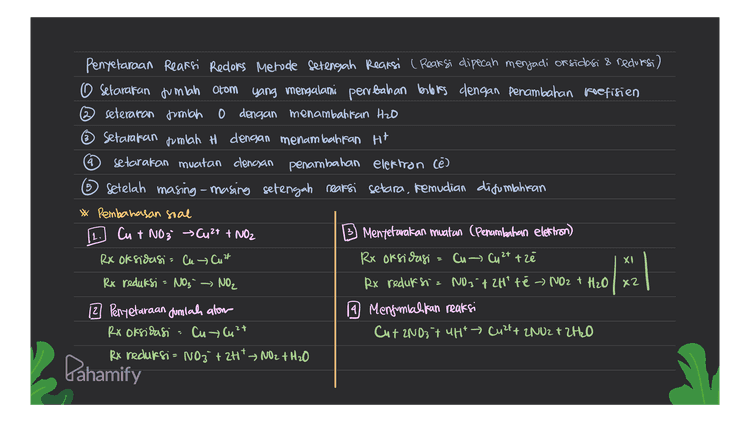 Penyetaraan Reaksi Redoks Metode Setengah Reaksi (Reaksi dipecah menjadi oksidasi & reduksi)
① Setarakan jumlah atom yang mengalami perubahan biloks dengan penambahan koefisien
② setarakan jumlah O dengan menambahkan H₂O
③ Setarakan jumlah H dengan menambahkan H⁺
④ setarakan muatan dengan penambahan elektron (ē)
⑤ Setelah masing-masing setengah reaksi setara, kemudian dijumlahkan
※ Pembahasan soal
1. Cu + NO₃⁻ → Cu²⁺ + NO₂
Rx oksidasi = Cu → Cu²⁺
Rx reduksi = NO₃⁻ → NO₂
2 Penyetaraan jumlah atom
Rx oksidasi = Cu → Cu²⁺
Rx reduksi = NO₃⁻ + 2H⁺ → NO₂ + H₂O
3 Menyetarakan muatan (Penambahan elektron)
Rx oksidasi = Cu → Cu²⁺ + 2ē | x1
Rx reduksi = NO₃⁻ + 2H⁺ + ē → NO₂ + H₂O | x2
4 Menjumlahkan reaksi
Cu + 2NO₃⁻ + 4H⁺ → Cu²⁺ + 2NO₂ + 2H₂O
Pahamify